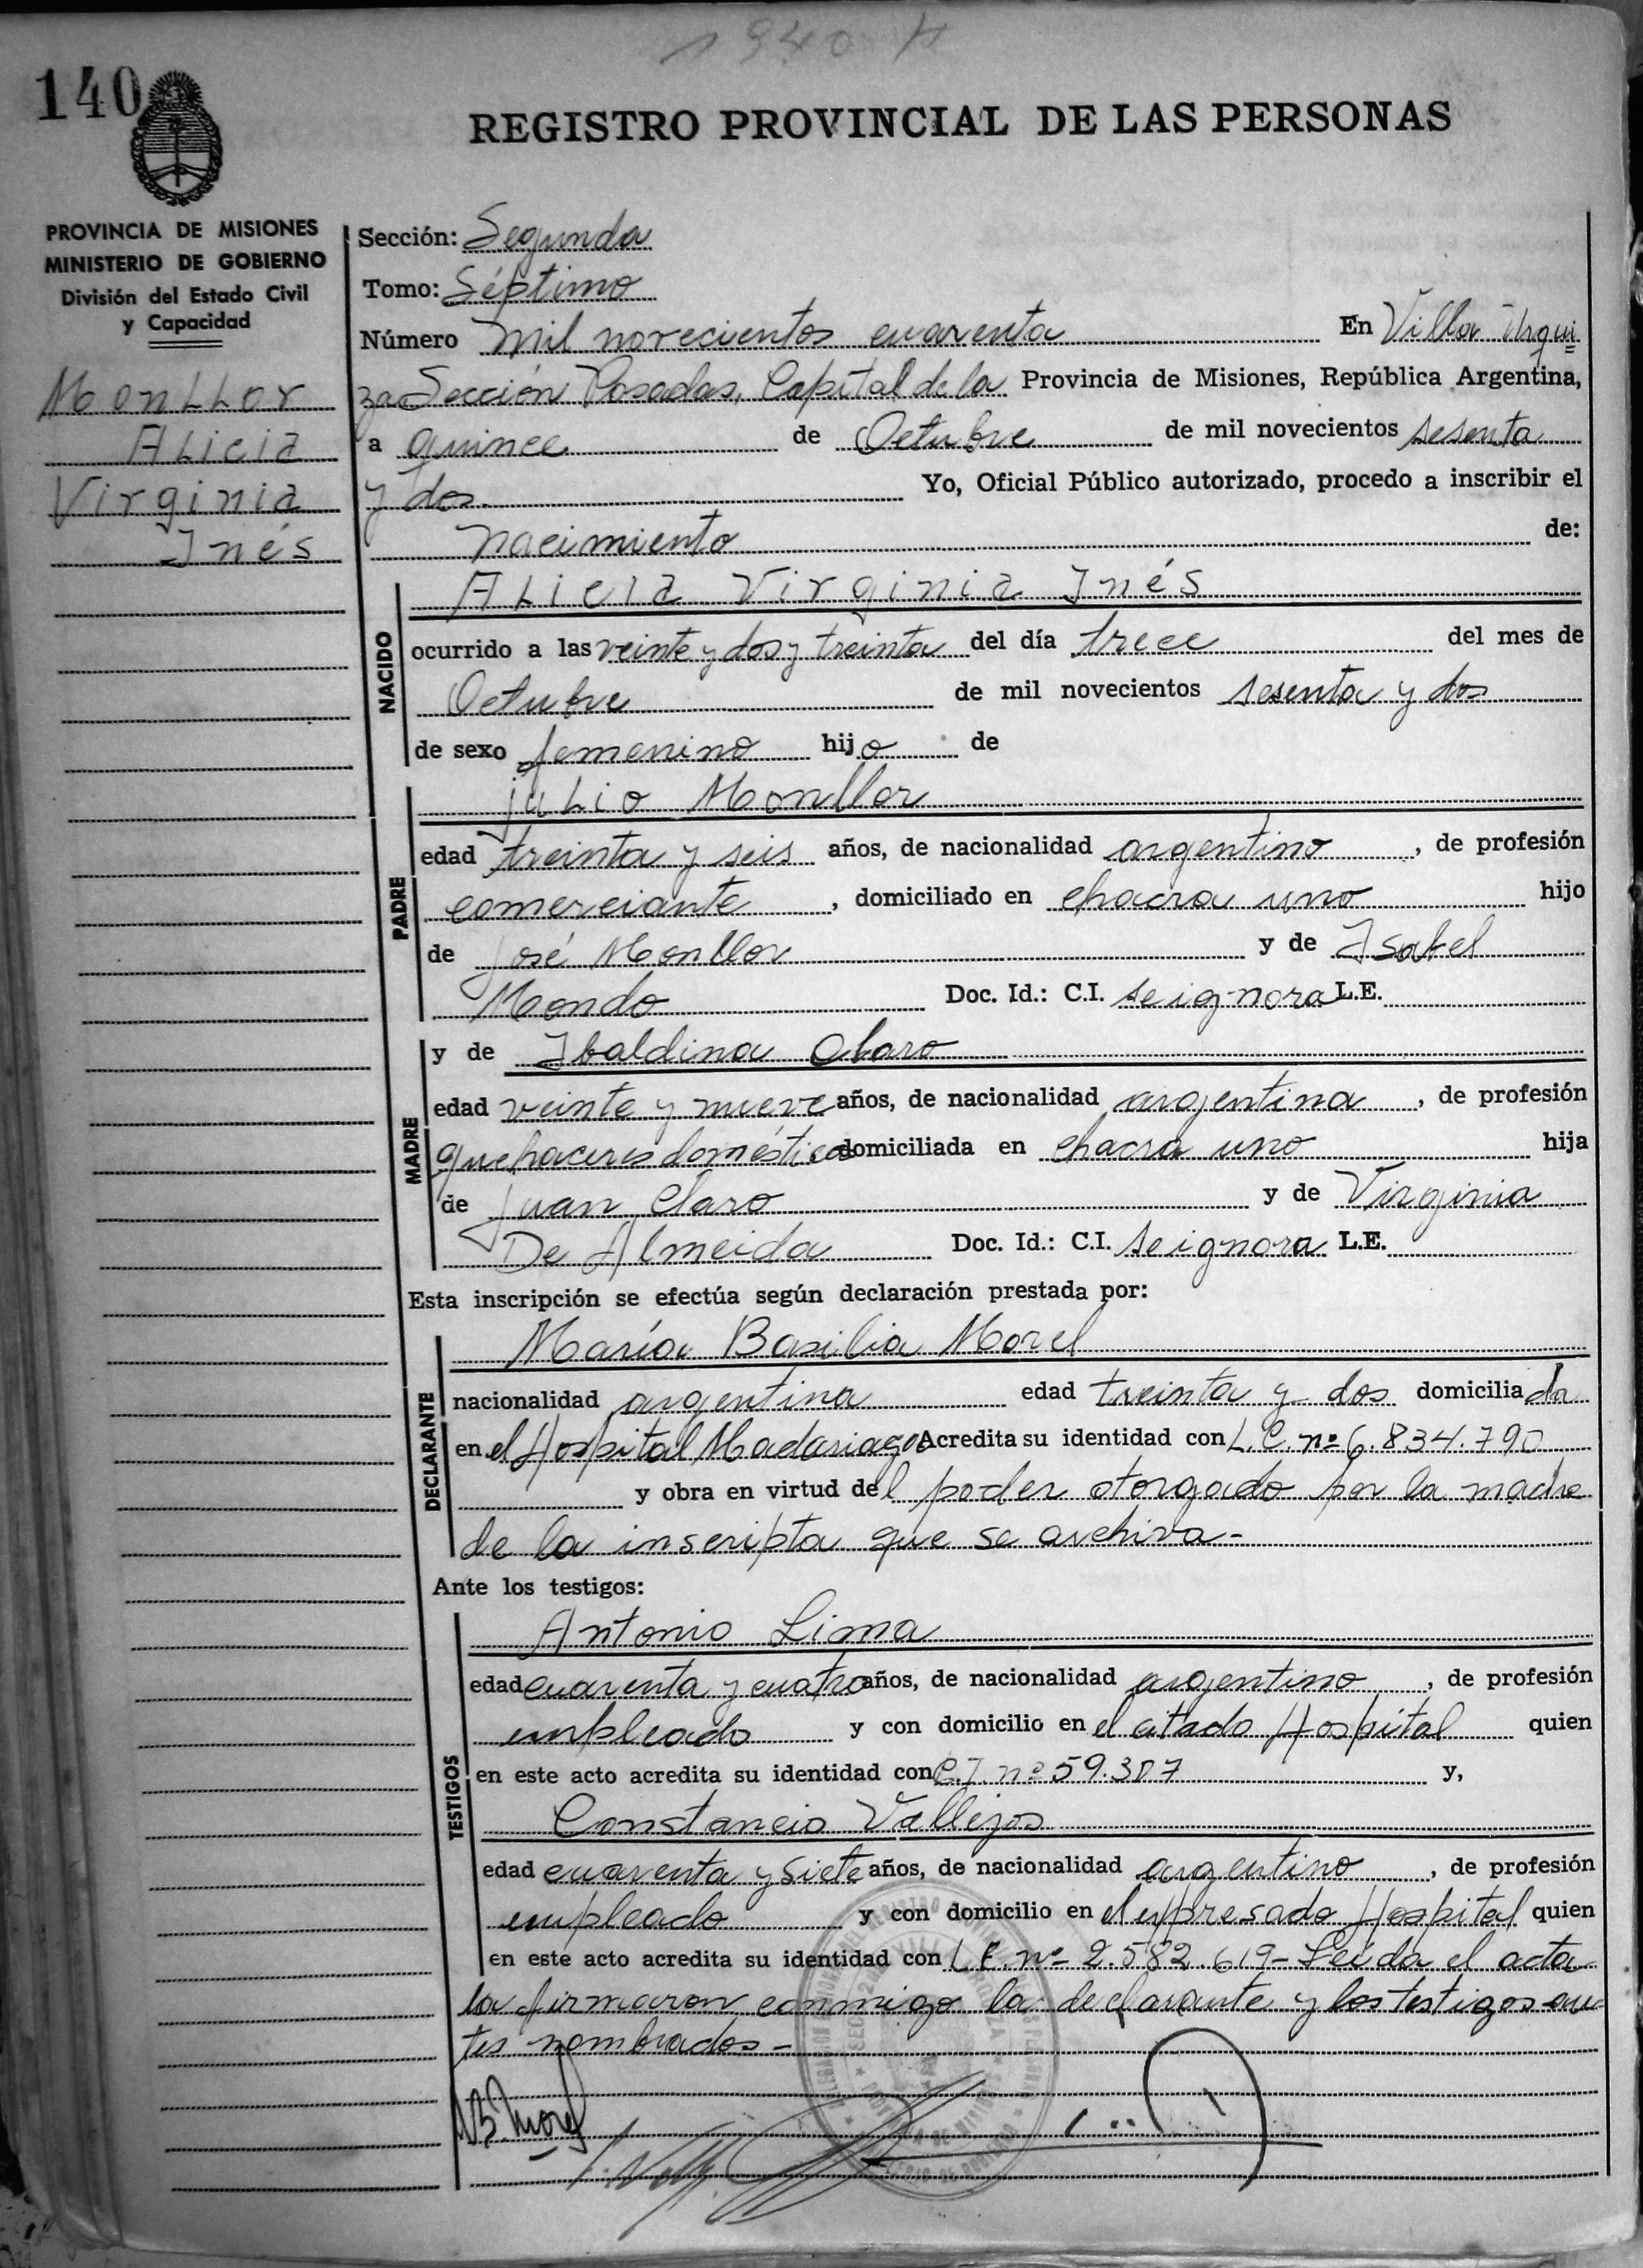 1940 H
140
REGISTRO PROVINCIAL DE LAS PERSONAS
PROVINCIA DE MISIONES
MINISTERIO DE GOBIERNO
División del Estado Civil
y Capacidad
Monllor
Alicia
Virginia
Inés
Sección: Segunda
Tomo: Séptimo
Número mil novecientos cuarenta En Villa Urqui
za Sección Posadas, Capital de la Provincia de Misiones, República Argentina,
a quince de Octubre de mil novecientos sesenta
y dos. Yo, Oficial Público autorizado, procedo a inscribir el
nacimiento de:
NACIDO
Alicia Virginia Inés
ocurrido a las veinte y dos y treinta del día trece del mes de
Octubre de mil novecientos sesenta y dos
de sexo femenino hijo de
PADRE
Julio Monllor
edad treinta y seis años, de nacionalidad argentino, de profesión
comerciante, domiciliado en chacra uno hijo
de José Monllor y de Isabel
Mondo Doc. Id.: C.I. se ignora L.E.
MADRE
y de Ibaldina Claro
edad veinte y nueve años, de nacionalidad argentina, de profesión
quehaceres domésticos domiciliada en chacra uno hija
de Juan Claro y de Virginia
De Almeida Doc. Id.: C.I. se ignora L.E.
Esta inscripción se efectúa según declaración prestada por:
DECLARANTE
María Basilia Morel
nacionalidad argentina edad treinta y dos domiciliada
en el Hospital Madariaga Acredita su identidad con L.C. nº 6.834.790
y obra en virtud del poder otorgado por la madre
de la inscripta que se archiva-
Ante los testigos:
TESTIGOS
Antonio Lima
edad cuarenta y cuatro años, de nacionalidad argentino, de profesión
empleado y con domicilio en el citado Hospital quien
en este acto acredita su identidad con C.I. nº 59.307 y,
Constancio Vallejos
edad cuarenta y siete años, de nacionalidad argentino, de profesión
empleado y con domicilio en el expresado Hospital quien
en este acto acredita su identidad con L.E. nº 2.582.619- Leída el acta
la firmaron conmigo la declarante y los testigos an
tes nombrados-
M B Morel